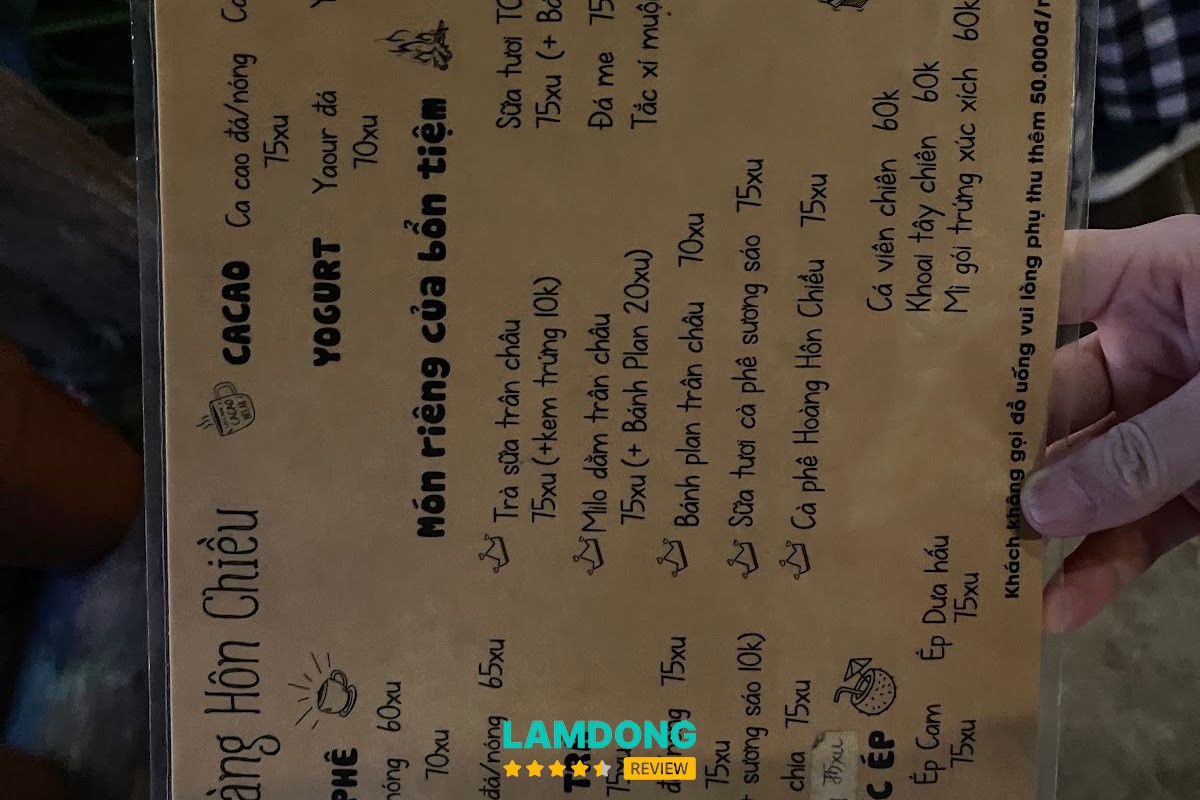 Hôn Chiều
PHÊ
60xu
70xu
đá/nóng 65xu
75xu
75xu
+ sương sáo 10k)
chia 75xu
ÉP
Ép Cam Ép Dưa hấu
75xu 75xu
CACAO Ca cao đá/nóng
CACAO
75xu
YOGURT Yaour đá
70xu
Món riêng của bổn tiệm
Trà sữa trân châu
75xu (+kem trứng 10k)
Milo dằm trân châu
75xu (+ Bánh Plan 20xu)
Bánh plan trân châu 70xu
Sữa tươi cà phê sương sáo 75xu
Cà phê Hoàng Hôn Chiều 75xu
Sữa tươi
75xu (+
Đá me
Tắc xí muội
Cá viên chiên 60k
Khoai tây chiên 60k
Mì gói trứng xúc xích 60k
Khách không gọi đồ uống vui lòng phụ thu thêm 50.000đ/
LAMDONG
REVIEW